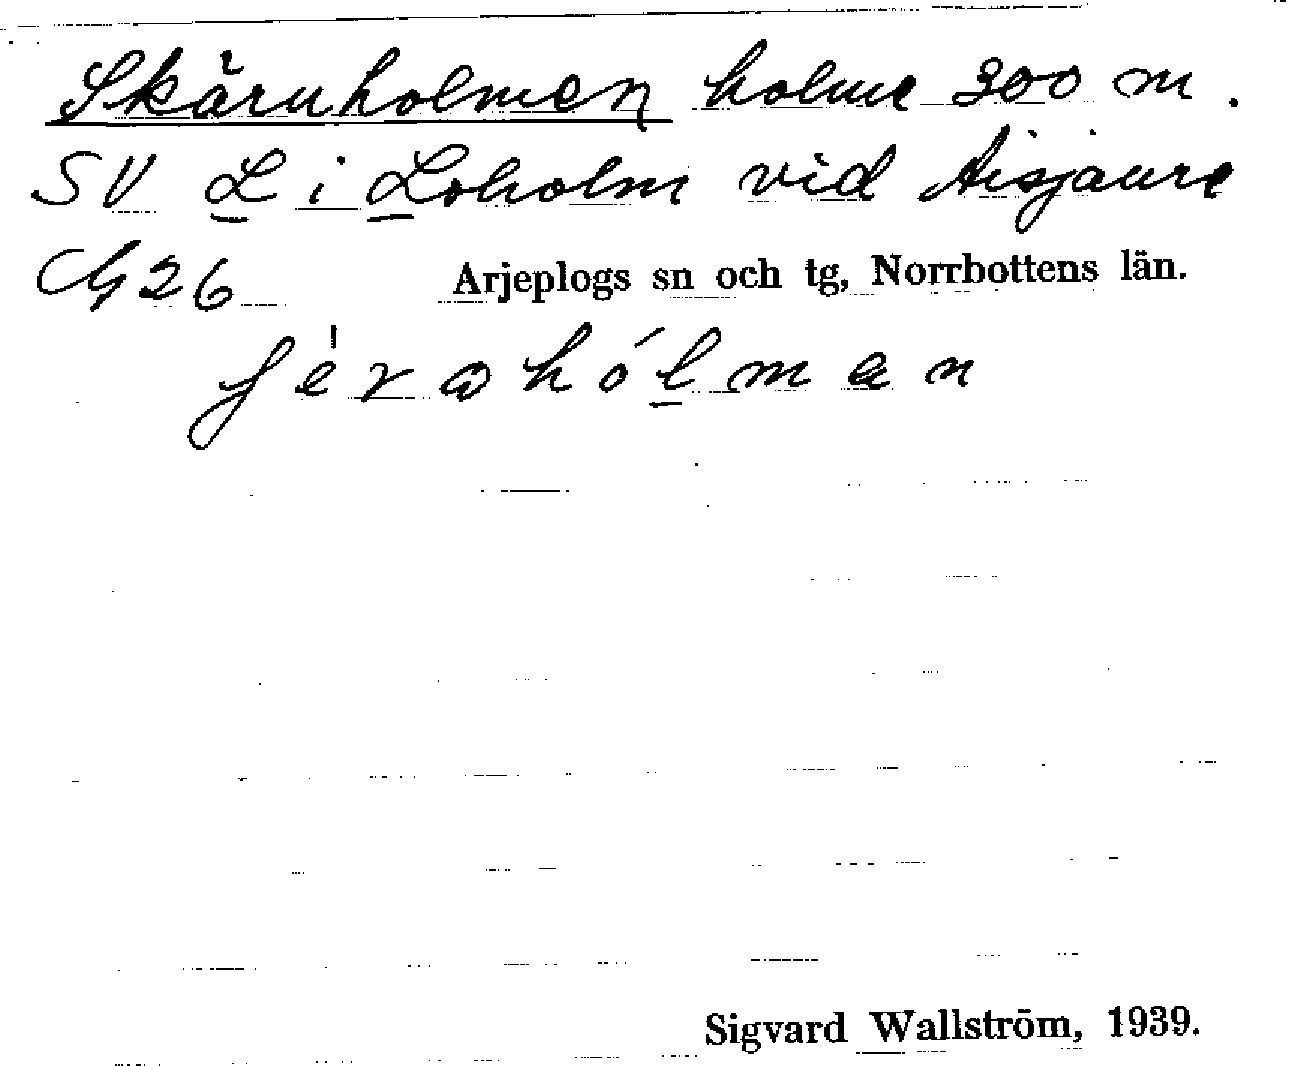 Skärnholmen holme 300 m.
SV L i Loholm vid Aisjaure
G26 Arjeplogs sn och tg, Norrbottens län.
Sigvard Wallström, 1939.